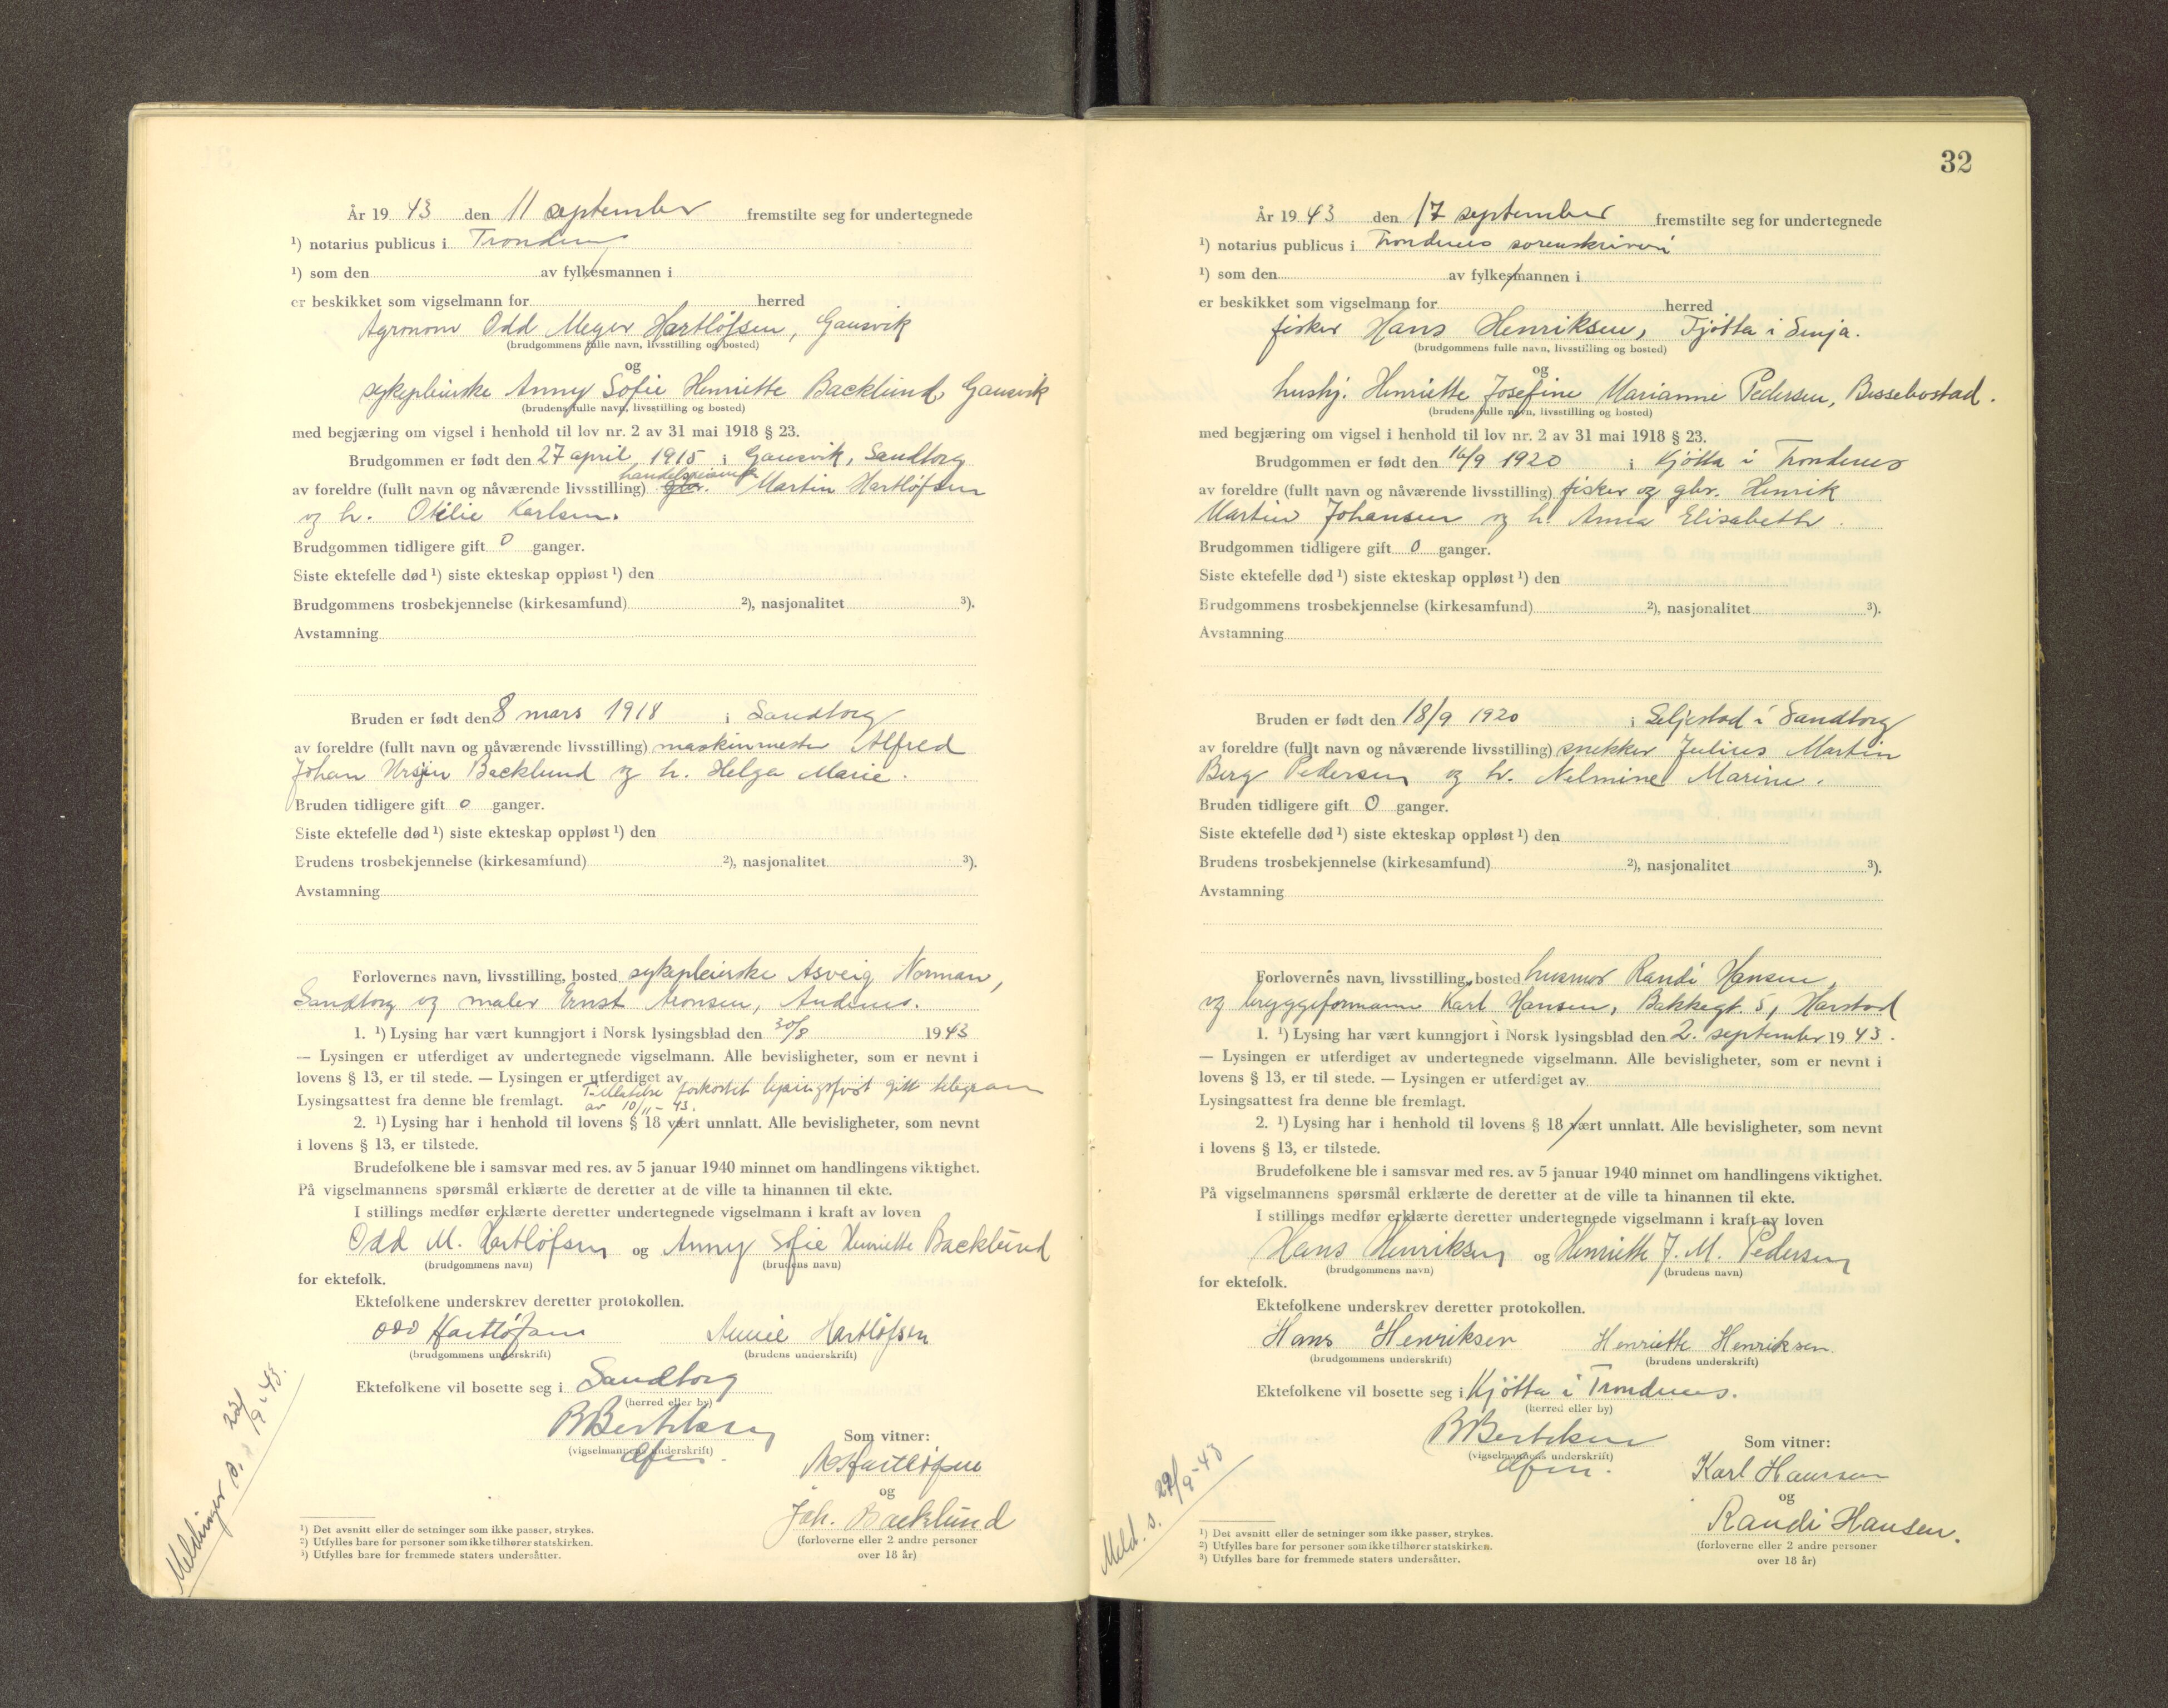 År 1943 den 11 september fremstilte seg for undertegnede
¹) notarius publicus i Trondenes
¹) som den av fylkesmannen i
er beskikket som vigselmann for herred
Agronom Odd Meyer Hartlöfsen, Gausvik
(brudgommens fulle navn, livsstilling og bosted)
og
sykepleierske Anny Sofie Henriette Backlund, Gausvik
(brudens fulle navn, livsstilling og bosted)
med begjæring om vigsel i henhold til lov nr. 2 av 31 mai 1918 § 23.
Brudgommen er født den 27 april 1915 i Gausvik, Sandtorg
av foreldre (fullt navn og nåværende livsstilling) gbr. Martin Hartlöfsen
og h. Otilie Karlsen.
Brudgommen tidligere gift 0 ganger.
Siste ektefelle død ¹) siste ekteskap oppløst ¹) den
Brudgommens trosbekjennelse (kirkesamfund) ²), nasjonalitet ³).
Avstamning
Bruden er født den 8 mars 1918 i Sandtorg
av foreldre (fullt navn og nåværende livsstilling) maskinmester Alfred
Johan Ursin Backlund og h. Helga Marie.
Bruden tidligere gift 0 ganger.
Siste ektefelle død ¹) siste ekteskap oppløst ¹) den
Brudens trosbekjennelse (kirkesamfund) ²), nasjonalitet ³).
Avstamning
Forlovernes navn, livsstilling, bosted sykepleierske Asveig Norman,
Sandtorg og maler Ernst Aronsen, Andenes.
1. ¹) Lysing har vært kunngjort i Norsk lysingsblad den 30/8 1943
— Lysingen er utferdiget av undertegnede vigselmann. Alle bevisligheter, som er nevnt i
lovens § 13, er til stede. — Lysingen er utferdiget av
Tillatelse forkortet lysingsfrist gitt telegram
Lysingsattest fra denne ble fremlagt. av 10/11-43.
2. ¹) Lysing har i henhold til lovens § 18 vært unnlatt. Alle bevisligheter, som nevnt
i lovens § 13, er tilstede.
Brudefolkene ble i samsvar med res. av 5 januar 1940 minnet om handlingens viktighet.
På vigselmannens spørsmål erklærte de deretter at de ville ta hinannen til ekte.
I stillings medfør erklærte deretter undertegnede vigselmann i kraft av loven
Odd M. Hartlöfsen og Anny Sofie Henriette Backlund
(brudgommens navn) (brudens navn)
for ektefolk.
Ektefolkene underskrev deretter protokollen.
Odd Hartlöfsen Annie Hartlöfsen
(brudgommens underskrift) (brudens underskrift)
Ektefolkene vil bosette seg i Sandtorg
(herred eller by)
B Bertelsen
(vigselmannens underskrift)
Som vitner:
Hartlöfsen
og
Joh. Backlund
(forloverne eller 2 andre personer
over 18 år)
¹) Det avsnitt eller de setninger som ikke passer, strykes.
²) Utfylles bare for personer som ikke tilhører statskirken.
³) Utfylles bare for fremmede staters undersåtter.
Meldinger s. 22/9-43.
32
År 1943 den 17 september fremstilte seg for undertegnede
¹) notarius publicus i Trondenes sorenskriveri
¹) som den av fylkesmannen i
er beskikket som vigselmann for herred
fisker Hans Henriksen, Tjötta i Senja.
(brudgommens fulle navn, livsstilling og bosted)
og
hushj. Henriette Josefine Marianne Pedersen, Bessebostad.
(brudens fulle navn, livsstilling og bosted)
med begjæring om vigsel i henhold til lov nr. 2 av 31 mai 1918 § 23.
Brudgommen er født den 16/9 1920 i Kjötta i Trondenes
av foreldre (fullt navn og nåværende livsstilling) fisker og gbr. Henrik
Martin Johansen og h. Anna Elisabeth.
Brudgommen tidligere gift 0 ganger.
Siste ektefelle død ¹) siste ekteskap oppløst ¹) den
Brudgommens trosbekjennelse (kirkesamfund) ²), nasjonalitet ³).
Avstamning
Bruden er født den 18/9 1920 i Seljestad i Sandtorg
av foreldre (fullt navn og nåværende livsstilling) snekker Julius Martin
Berg Pedersen og h. Nelmine Marine.
Bruden tidligere gift 0 ganger.
Siste ektefelle død ¹) siste ekteskap oppløst ¹) den
Brudens trosbekjennelse (kirkesamfund) ²), nasjonalitet ³).
Avstamning
Forlovernes navn, livsstilling, bosted husmor Randi Hansen,
og bryggeformann Karl Hansen, Bakkegt. 5, Harstad
1. ¹) Lysing har vært kunngjort i Norsk lysingsblad den 2. september 1943.
— Lysingen er utferdiget av undertegnede vigselmann. Alle bevisligheter, som er nevnt i
lovens § 13, er til stede. — Lysingen er utferdiget av
Lysingsattest fra denne ble fremlagt.
2. ¹) Lysing har i henhold til lovens § 18 vært unnlatt. Alle bevisligheter, som nevnt
i lovens § 13, er tilstede.
Brudefolkene ble i samsvar med res. av 5 januar 1940 minnet om handlingens viktighet.
På vigselmannens spørsmål erklærte de deretter at de ville ta hinannen til ekte.
I stillings medfør erklærte deretter undertegnede vigselmann i kraft av loven
Hans Henriksen og Henriette J. M. Pedersen
(brudgommens navn) (brudens navn)
for ektefolk.
Ektefolkene underskrev deretter protokollen.
Hans Henriksen Henriette Henriksen
(brudgommens underskrift) (brudens underskrift)
Ektefolkene vil bosette seg i Kjötta i Trondenes.
(herred eller by)
B Bertelsen
(vigselmannens underskrift)
Som vitner:
Karl Hansen
og
Randi Hansen.
(forloverne eller 2 andre personer
over 18 år)
¹) Det avsnitt eller de setninger som ikke passer, strykes.
²) Utfylles bare for personer som ikke tilhører statskirken.
³) Utfylles bare for fremmede staters undersåtter.
Meld. s. 29/9-43